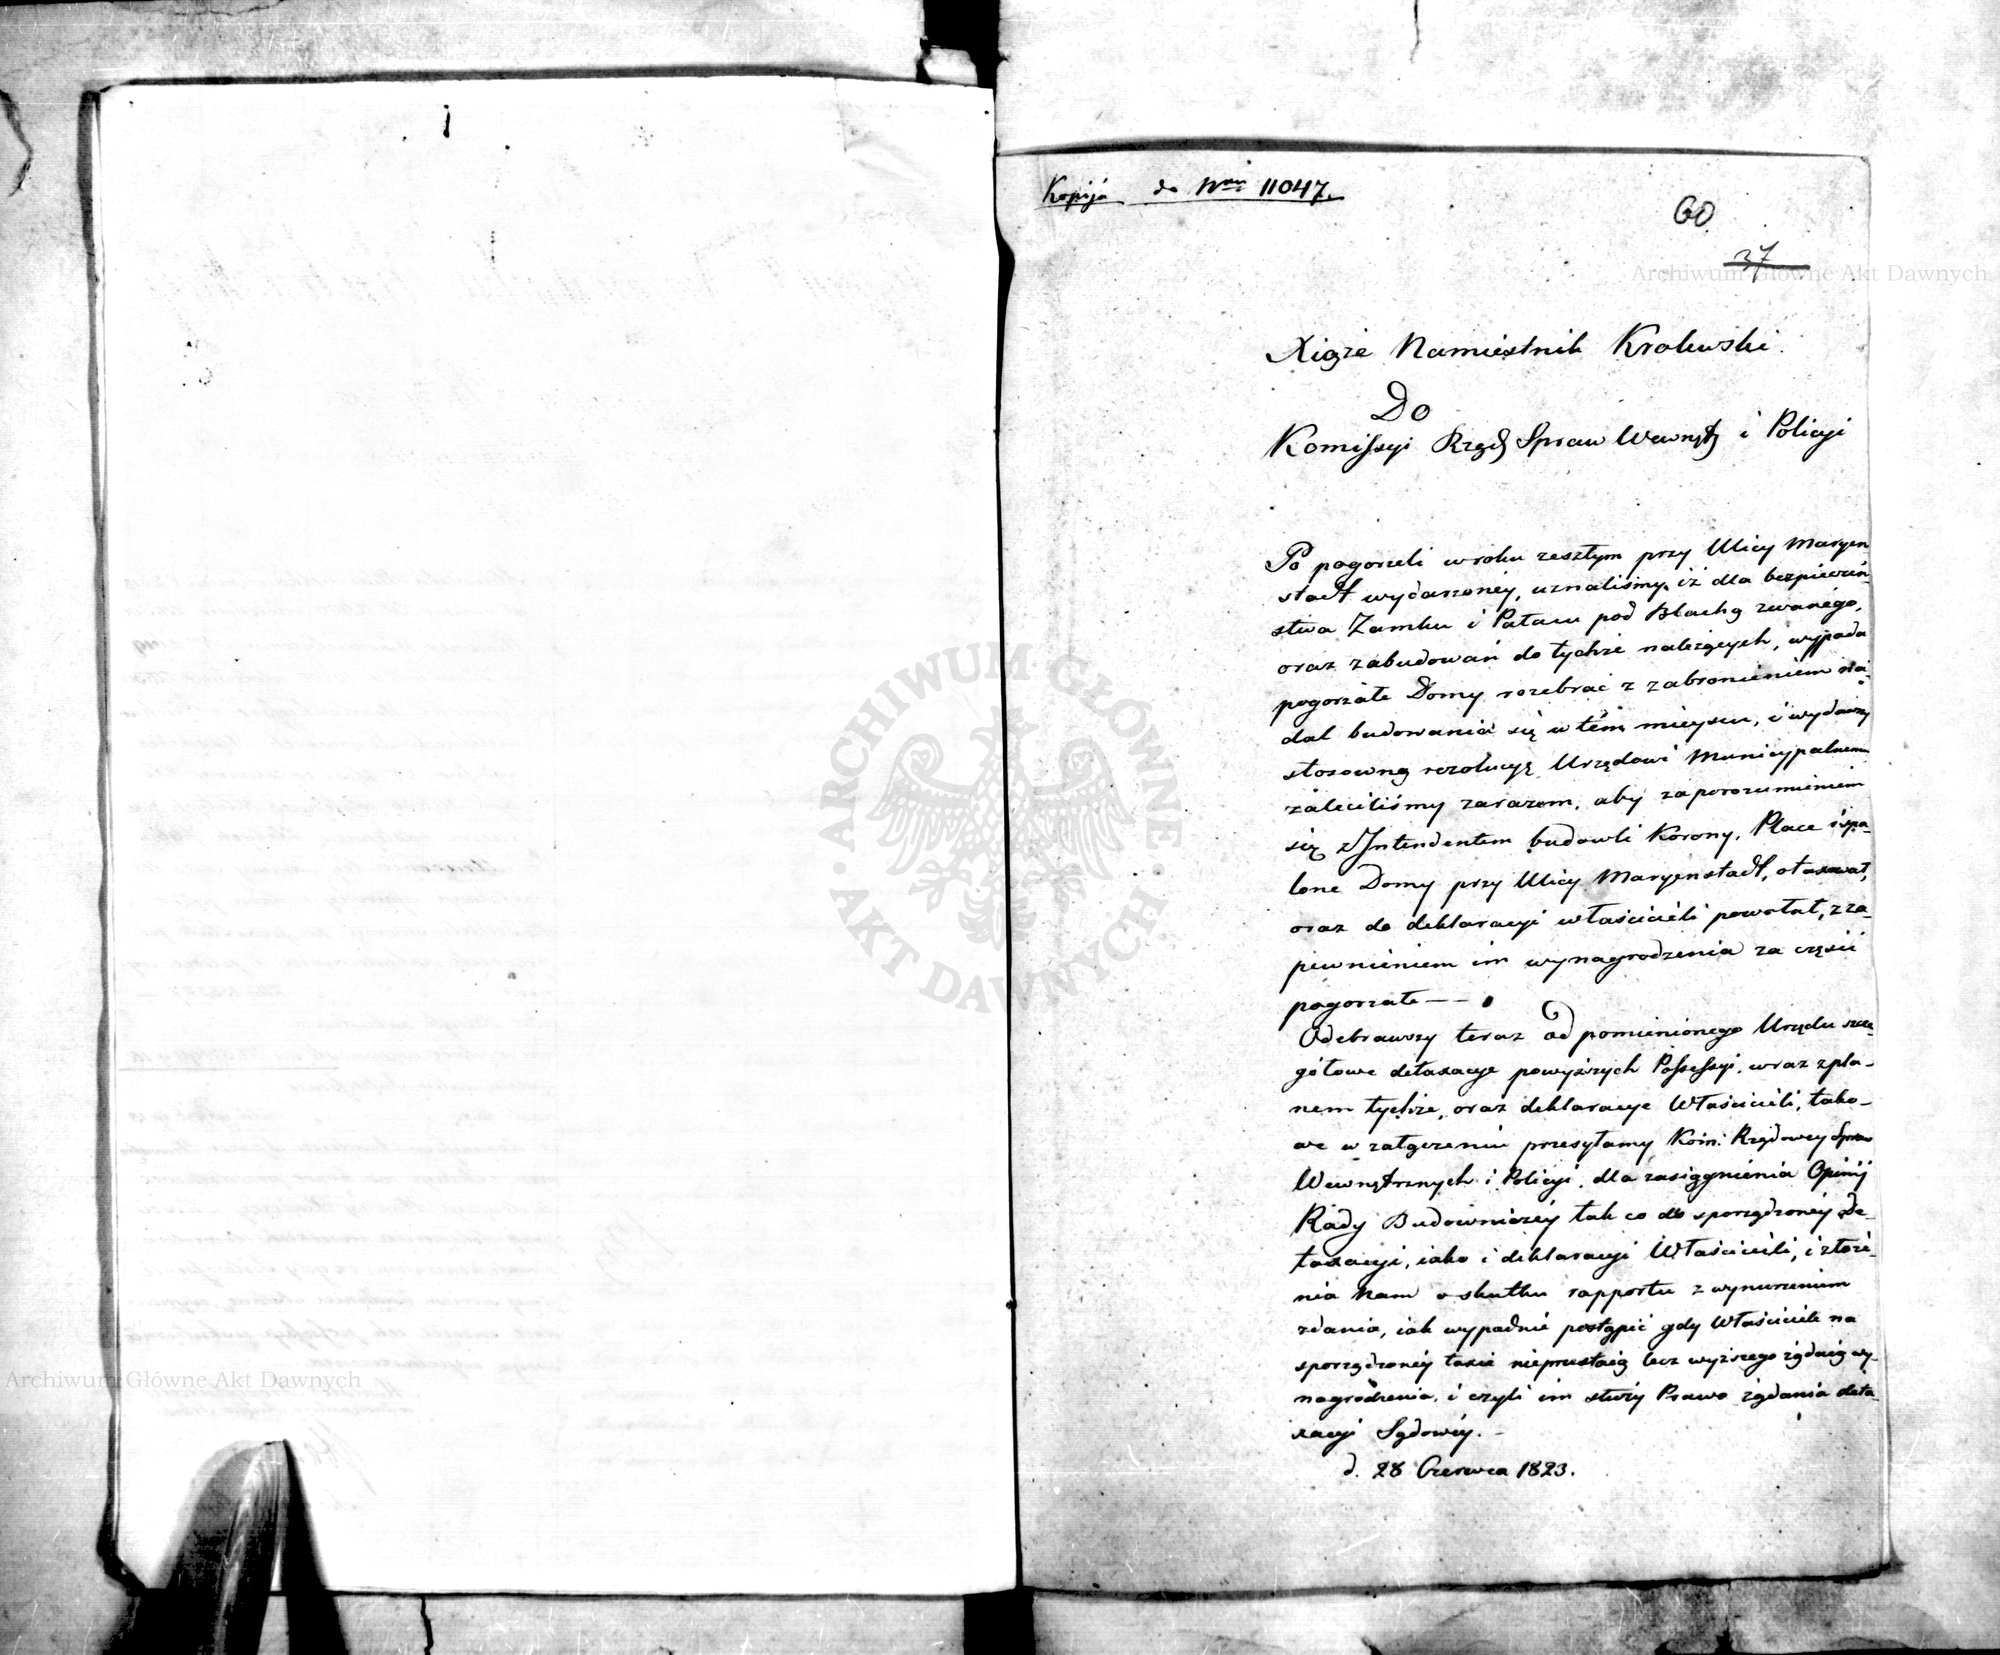 Kopija do Nru 11047.
60
37
Xiąże Namiestnik Krolewski
Do
Komissyi Rząd Spraw Wewnętz i Policyi
Po pogorzeli w roku zeszłym przy Ulicy Maryen
stadt wydarzonéy, uznaliśmy, iż dla bezpieczeń-
stwa Zamku i Pałacu pod Blachą zwanégo,
oraz zabudowań do tychże należących, wypada
pogorzałe Domy rozebrać z zabronieniem na-
dal budowania się w tém mieyscu, i wydawszy
stosowną rezolucyę Urzędowi Municypalnemu
zaleciliśmy zarazem, aby za porozumieniem
się z Intendentem budowli Korony, Place i spa-
lone Domy przy Ulicy Maryenstadt, otaxował,
oraz do deklaracyi właścicieli powołał, z za-
pewnieniem im wynagrodzenia za części
pogorzałe —
Odebrawszy teraz od pomienionego Urzędu szcze-
gółowe detaxacye powyższych Possessyi, wraz z pla-
nem tychże, oraz deklaracye Właścicieli, tako-
we w załączeniu przesyłamy Kom: Rządowey Spraw
Wewnętrznych i Policyi, dla zasiągnienia Opinij
Rady Budowniczéy tak co do sporządzonéy De-
taxacyi, iako i deklaracyi Właścicieli, i złoże-
nia Nam w skutku rapportu z wynurzeniem
zdania, iak wypadnie postąpić gdy Właściciele na
sporządzonéy taxie nieprzestaią lecz wyższego żądaią wy-
nagrodzenia, i czyli im służy Prawo żądania deta-
xacyi Sądowéy. -
d. 28 Czerwca 1823.
Archiwum Główne Akt Dawnych
Archiwum Główne Akt Dawnych
ARCHIWUM GŁÓWNE AKT DAWNYCH